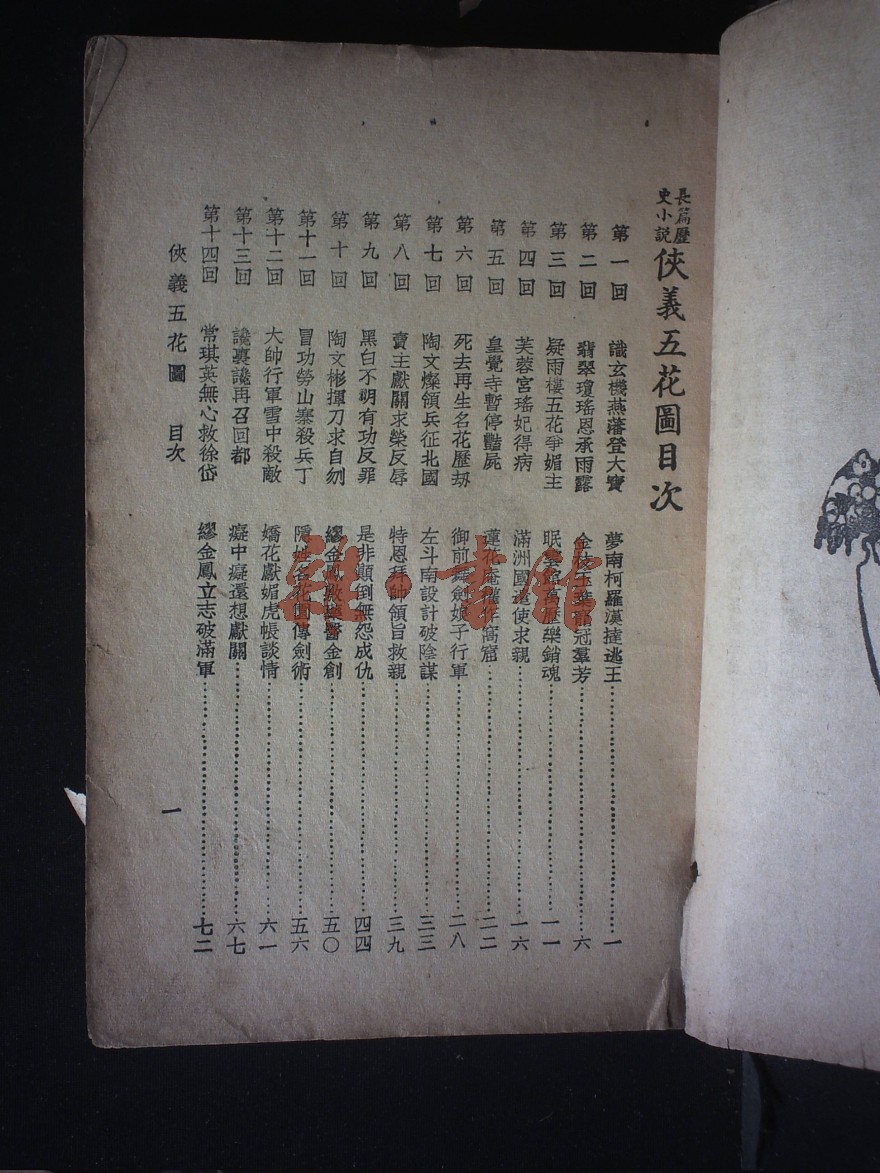 長篇歷史小說 俠義五花圖目次
第一回 識玄機燕藩登大寶 夢南柯羅漢撞逃王 一
第二回 翡翠瓊瑤恩承雨露 金枝玉葉 冠羣芳 六
第三回 疑雨樓五花爭媚主 眠雲館萬歷樂銷魂 一一
第四回 芙蓉宮瑤妃得病 滿洲國遣使求親 一六
第五回 皇覺寺暫停豔屍 蓮花庵 窩窟 二二
第六回 死去再生名花歷劫 御前舞劍娘子行軍 二八
第七回 陶文燦領兵征北國 左斗南設計破陰謀 三三
第八回 賣主獻關求榮反辱 特恩拜帥領旨救親 三九
第九回 黑白不明有功反罪 是非顚倒無怨成仇 四四
第十回 陶文彬揮刀求自刎 繆金鳳 醫金創 五〇
第十一回 冒功勞山寨殺兵丁 隱姓名花園傳劍術 五六
第十二回 大帥行軍雪中殺敵 嬌花獻媚虎帳談情 六一
第十三回 讒裏讒再召回都 癡中癡還想獻關 六七
第十四回 常琪英無心救徐岱 繆金鳳立志破滿軍 七二
俠義五花圖 目次
一